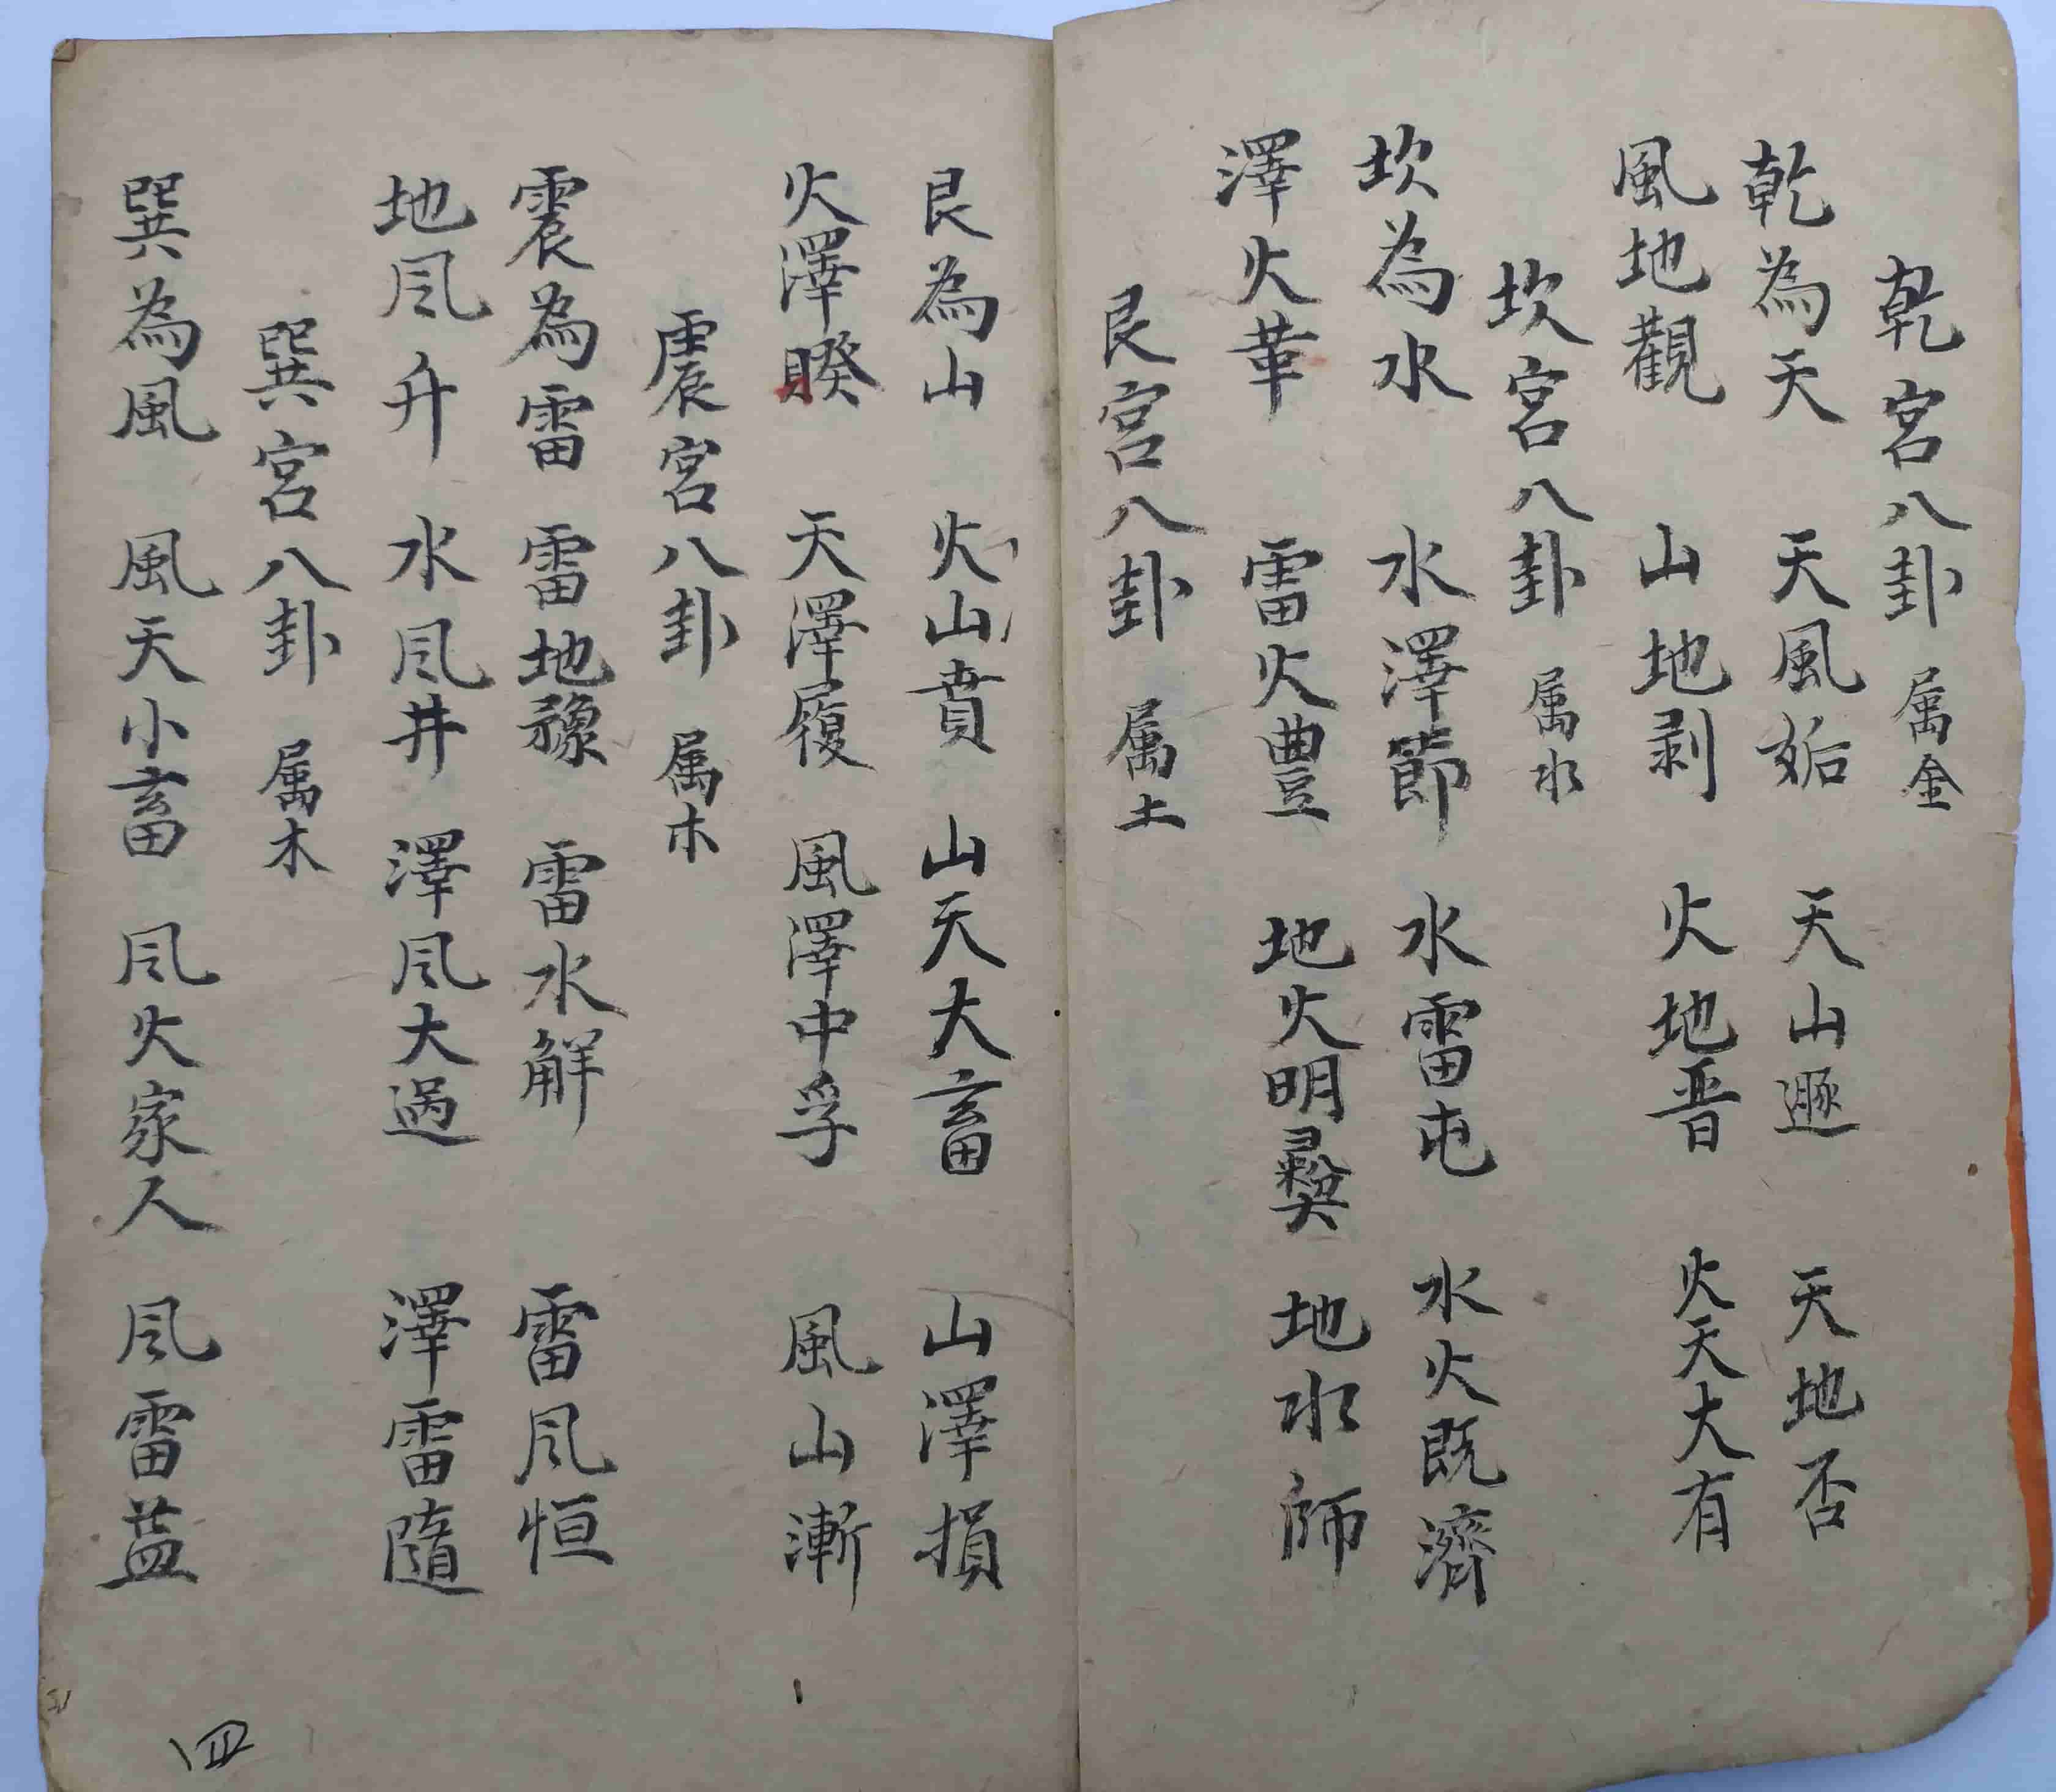 乾宮八卦 属金
乾為天 天風姤 天山遯 天地否
風地觀 山地剥 火地晋 火天大有
坎宮八卦 属水
坎為水 水澤節 水雷屯 水火既濟
澤火革 雷火豊 地火明彛 地水師
艮宮八卦 属土
艮為山 火山賁 山天大畜 山澤損
火澤睽 天澤履 風澤中孚 風山漸
震宮八卦 属木
震為雷 雷地豫 雷水解 雷凬恒
地凬升 水凬井 澤凬大過 澤雷隨
巽宮八卦 属木
巽為風 風天小畜 凬火家人 凬雷益
四